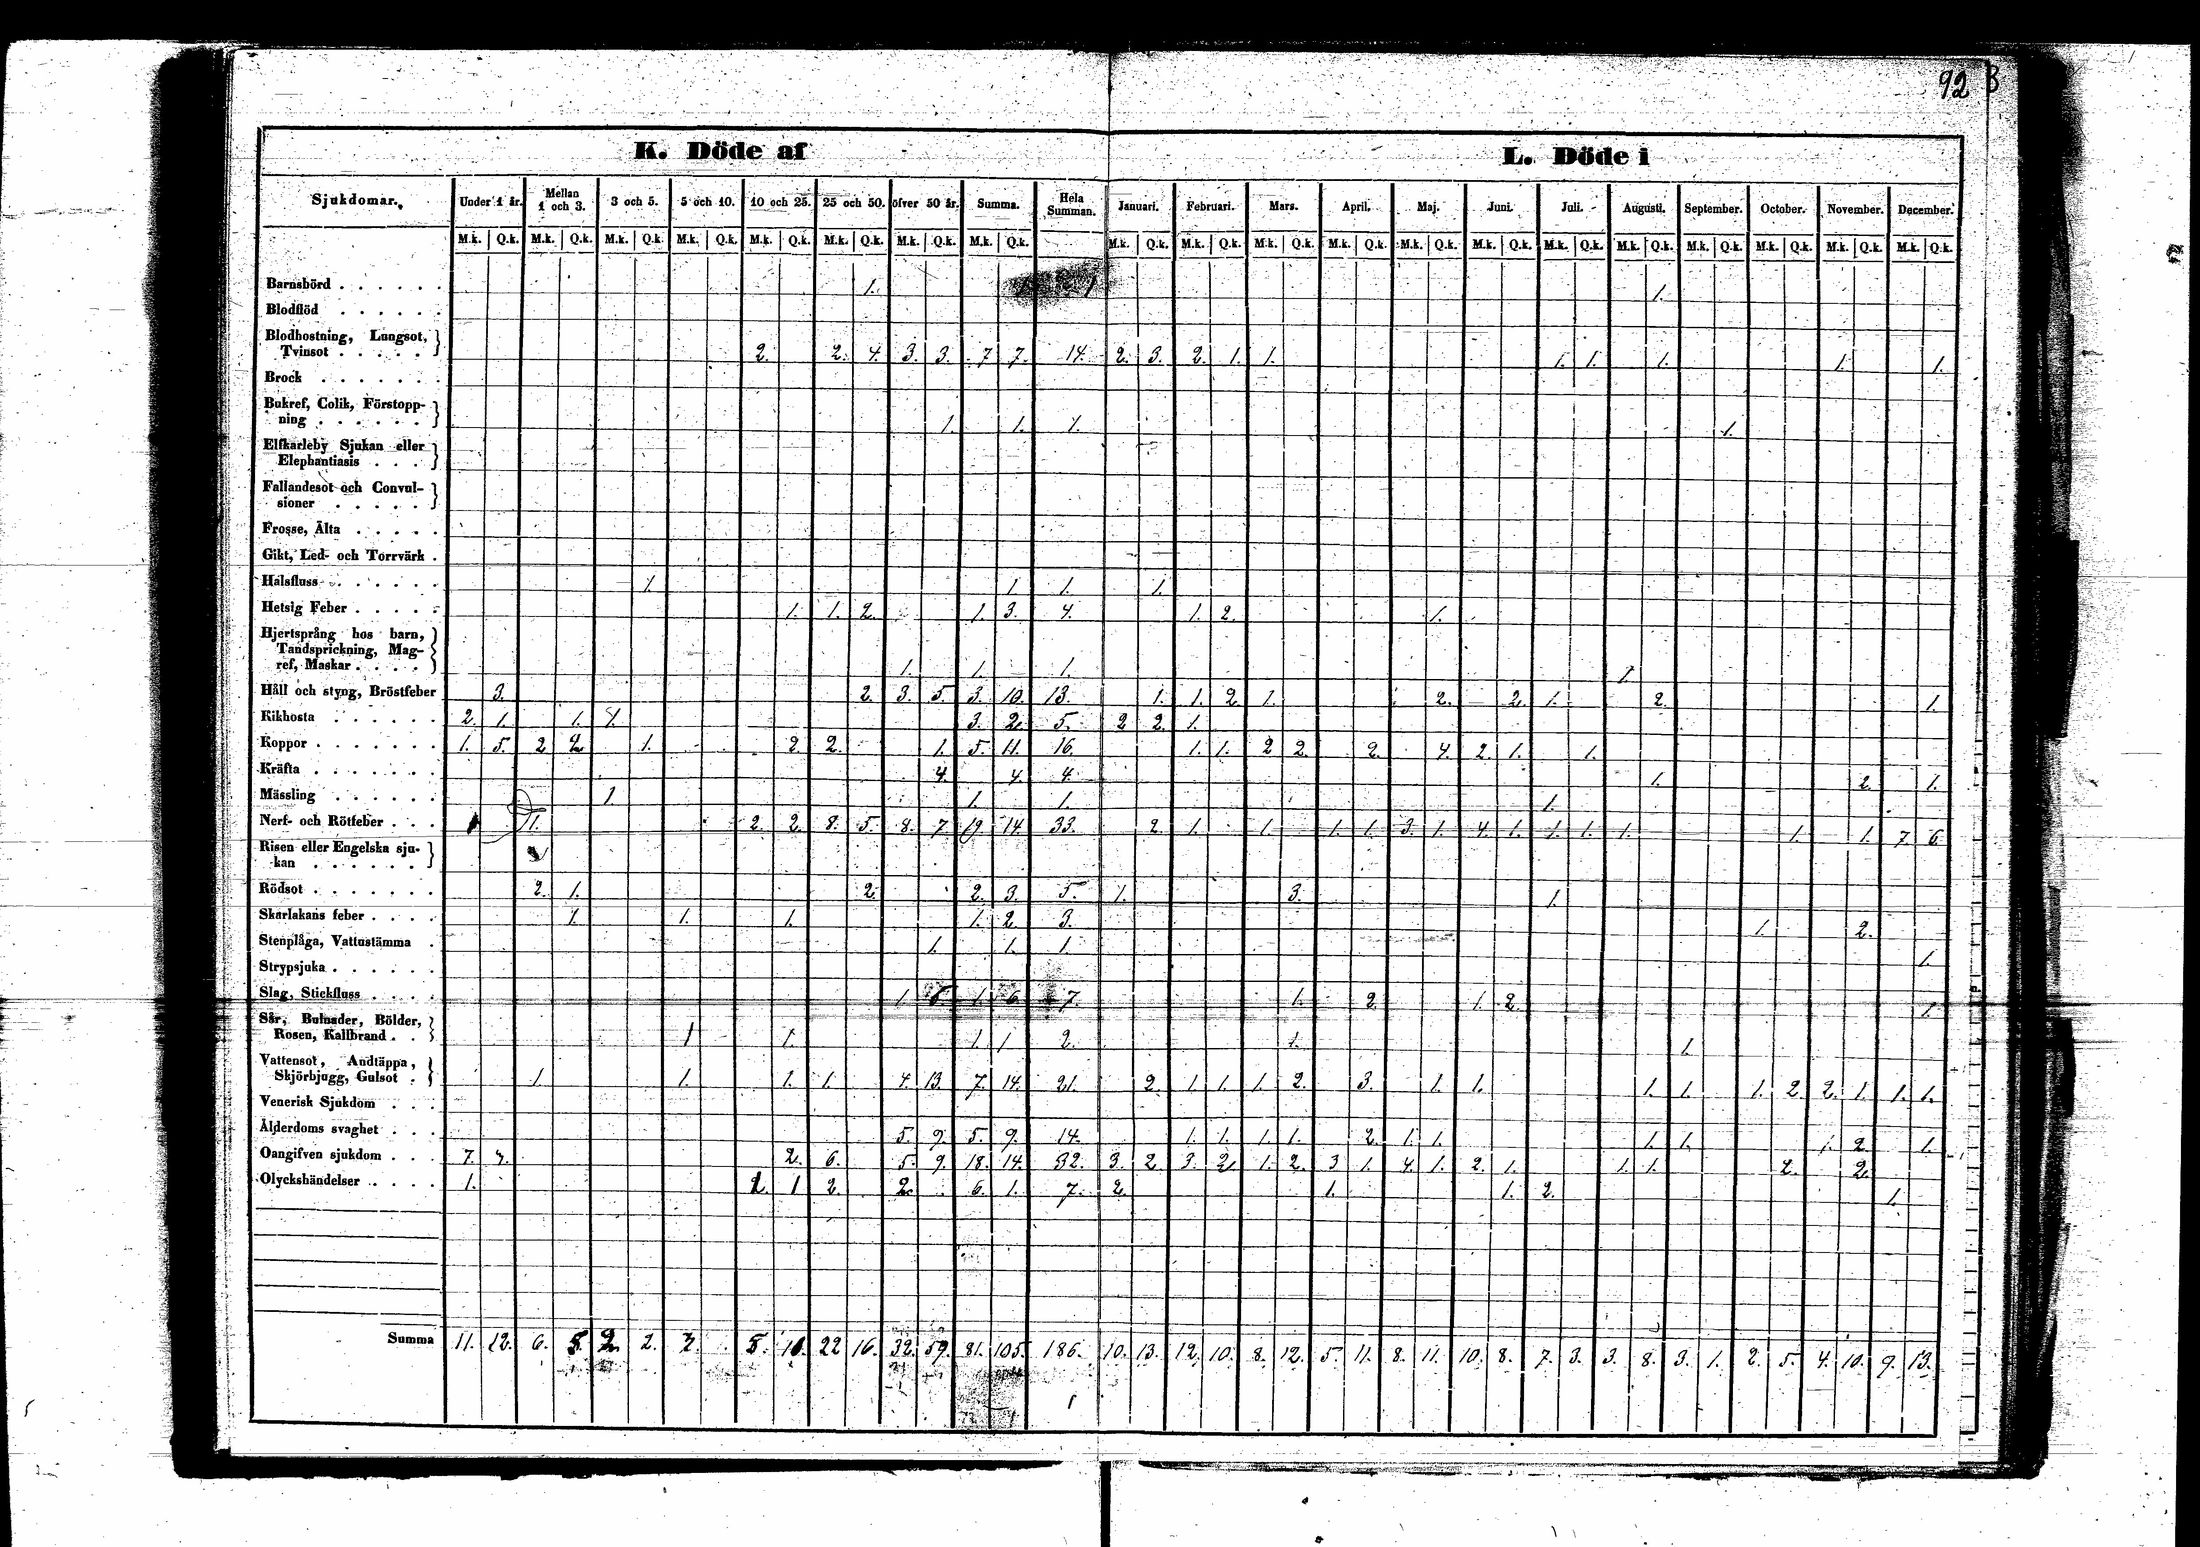 92 B
K. Döde af
L. Döde i
Sjukdomar. Under 1 år. Mellan 1 och 3. 3 och 5. 5 och 10. 10 och 25. 25 och 50. öfver 50 år. Summa. Hela Summan. Januari. Februari. Mars. April. Maj. Juni. Juli. Augusti. September. October. November. December.
M.k. Q.k. M.k. Q.k. M.k. Q.k. M.k. Q.k. M.k. Q.k. M.k. Q.k. M.k. Q.k. M.k. Q.k. M.k. Q.k. M.k. Q.k. M.k. Q.k. M.k. Q.k. M.k. Q.k. M.k. Q.k. M.k. Q.k. M.k. Q.k. M.k. Q.k. M.k. Q.k. M.k. Q.k. M.k. Q.k.
Barnsbörd . . . . . . 1. 1 1 1.
Blodflöd . . . . . .
Blodhostning, Lungsot,
Tvinsot . . . . . 2. 2. 4. 3. 3. 7. 7. 14. 2. 3. 2. 1. 1. 1. 1. 1. 1. 1.
Brock . . . . . . .
Bukref, Colik, Förstopp-
ning . . . . . . 1. 1. 1. 1.
Elfkarleby Sjukan eller
Elephantiasis . . .
Fallandesot och Convul-
sioner . . . . .
Frosse, Älta . . . . .
Gikt, Led- och Torrvärk .
Halsfluss . . . . . . 1. 1 1. 1.
Hetsig Feber . . . . . 1. 1. 2. 1. 3. 4. 1. 2. 1.
Hjertsprång hos barn,
Tandsprickning, Mag-
ref, Maskar . . . . 1. 1. 1. 1.
Håll och styng, Bröstfeber 3. 2. 3. 5. 3. 10. 13. 1. 1. 2 1. 2. 2. 1. 2. 1.
Kikhosta . . . . . . 2. 1. 1. 1. 3. 2. 5. 2 2. 1.
Koppor . . . . . . . 1. 5. 2 2 1. 2. 2. 1. 5. 11. 16. 1. 1. 2 2. 2. 4. 2. 1. 1.
Kräfta . . . . . . . 4. 4. 4. 1. 2. 1.
Mässling . . . . . . 1 1. 1. 1.
Nerf- och Rötfeber . . . 1. 2. 2. 8. 5. 8. 7. 19. 14. 33. 2. 1. 1. 1. 1. 3. 1. 4. 1. 1. 1. 1. 1. 1. 7. 6.
Risen eller Engelska sju-
kan . . . . . .
Rödsot . . . . . . . 2. 1. 2. 2. 3. 5. 1. 3. 1.
Skarlakans feber . . . . 1. 1. 1. 1. 2 3. 1. 2.
Stenplåga, Vattustämma . 1. 1. 1. 1.
Strypsjuka . . . . . .
Slag, Stickfluss . . . . 1 6. 1. 6. 7. 1. 2. 1. 2. 1.
Sår, Bulnader, Bölder,
Rosen, Kallbrand . . 1 1. 1. 1 2. 1. 1.
Vattensot, Andtäppa,
Skjörbjugg, Gulsot . 1. 1. 1. 1. 4. 13. 7. 14. 21. 2. 1. 1. 1. 2. 3. 1. 1. 1. 1. 1. 2. 2. 1. 1. 1.
Venerisk Sjukdom . . .
Ålderdoms svaghet . . . 5. 9. 5. 9. 14. 1. 1. 1. 1. 2. 1. 1. 1. 1. 1. 2. 1.
Oangifven sjukdom . . . 7. 3. 2. 6. 5. 9. 18. 14. 32. 3. 2. 3. 2. 1. 2. 3 1. 4. 1. 2. 1. 1. 1. 2. 2.
Olyckshändelser . . . . 1. 1. 1 2. 2. 6. 1. 7. 2. 1. 1. 2. 1.
Summa 11. 12. 6. 5. 2. 2. 3. 5. 10. 22 16. 32. 59. 81. 105. 186. 10. 13. 12. 10. 8. 12. 5. 11. 8. 11. 10. 8. 7. 3. 3. 8. 3. 1. 2. 5. 4. 10. 9. 13.